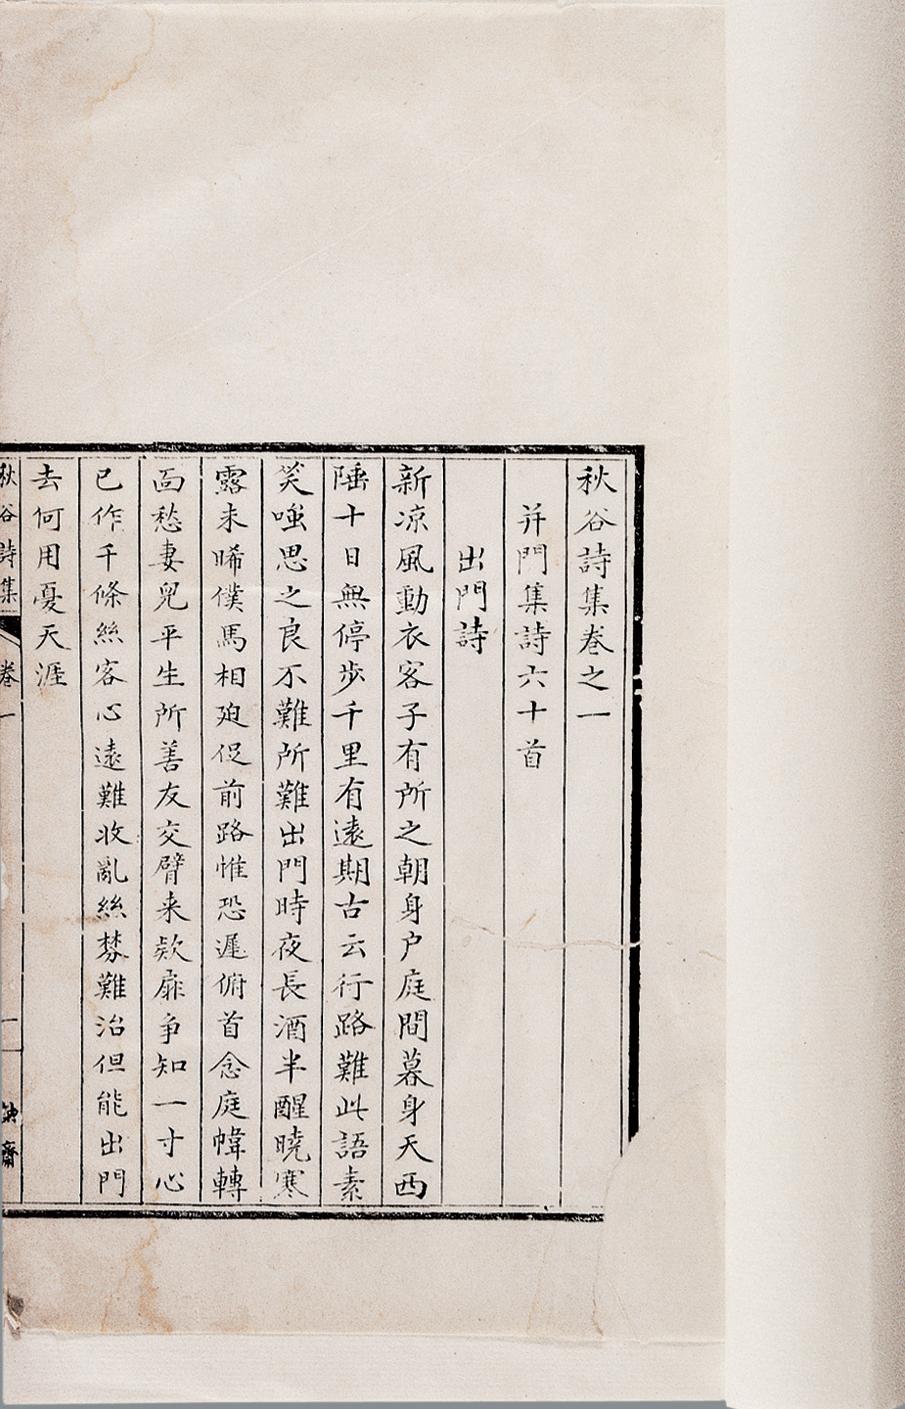 秋谷詩集卷之一
并門集詩六十首
出門詩
新凉風動衣客子有所之朝身户庭間暮身天西
陲十日無停步千里有遠期古云行路難此語素
笑嗤思之良不難所難出門時夜長酒半醒曉寒
露未晞僕馬相廹促前路惟恐遲俯首念庭幃轉
面愁妻兒平生所善友交臂来欵扉争知一寸心
已作千條絲客心遠難收亂絲棼難治但能出門
去何用憂天涯
秋谷詩集 卷一 一 齋